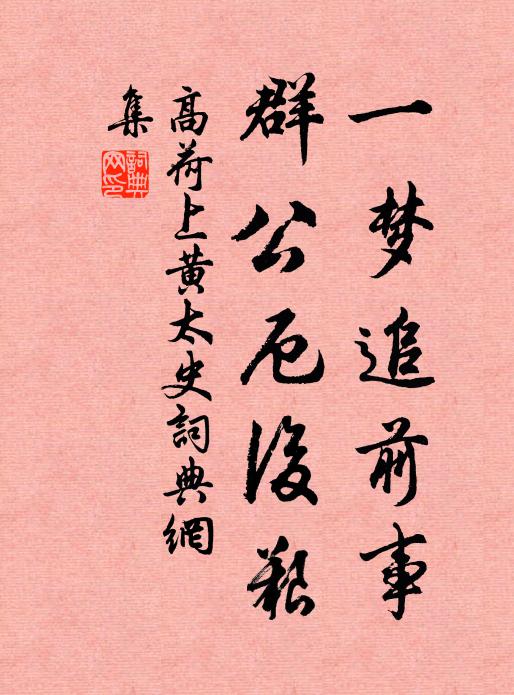 一梦追前事
群公厄後艱
高荷上黄太史詞典網
集
詞典網印